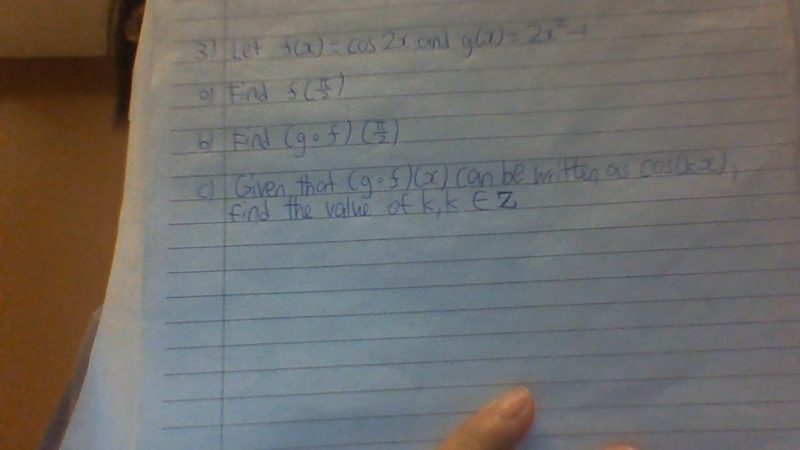 3) Let f(x) = cos 2x and g(x) = 2x² - 1
a) Find f(π/2)
b) Find (g∘f)(π/2)
c) Given that (g∘f)(x) can be written as cos(kx),
find the value of k, k ∈ Z